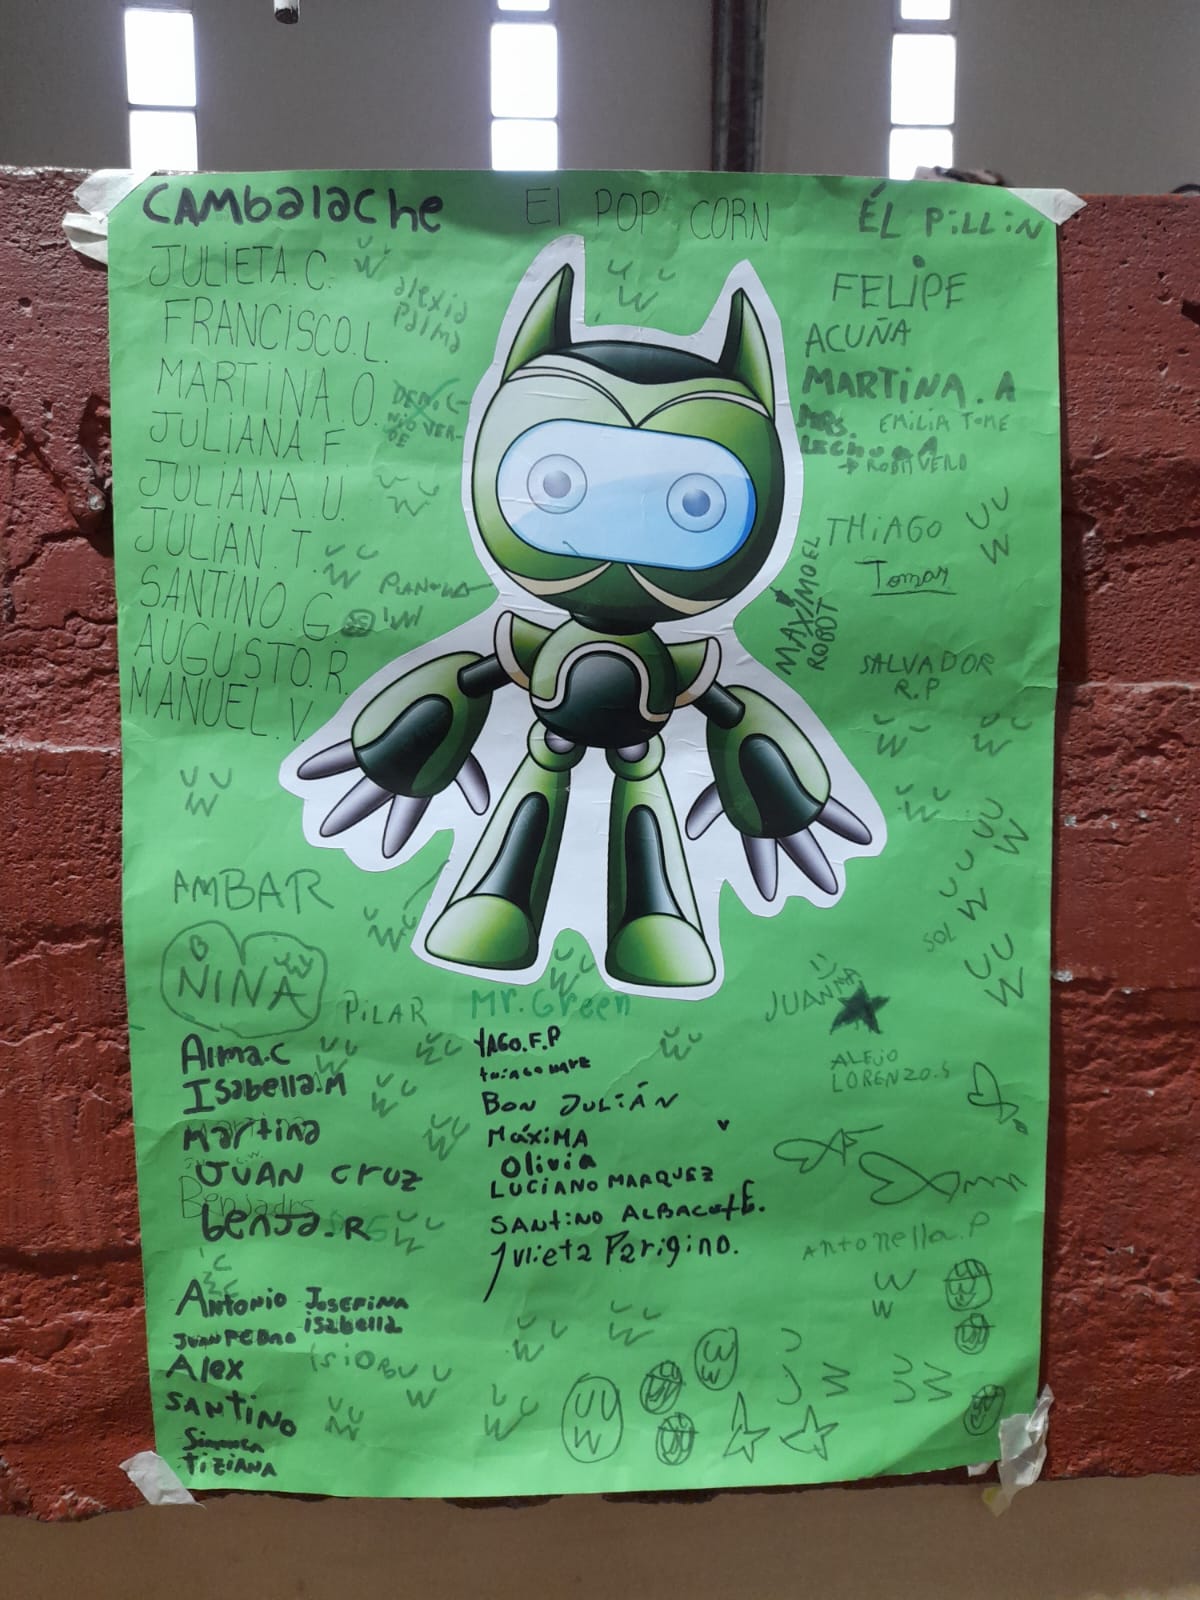 CAMbalache
El POP CORN
ÉL PiLLiN
JULiETA.C.
FRANCiSCO.L.
MARTiNA.O.
JULIANA.F
JULIANA.U.
JULIAN.T.
SANTINO.G
AUGUSTO.R.
MANUEL.V.
alexia
Palma
FELiPE
ACUÑA
MARTiNA.A
EMILIA TOME
THiAGO
Tomas
ROBOT
SALVADOR
R.P
AMBAR
NINA
PiLAR
Mr.Green
SOL
JUANMA
Alma.C
Isabella.M
Martina
JUAN CRUZ
benja.R
YAGO.F.P
BON JULIÁN
MáxiMA
Olivia
LUCiANO MARQUEZ
SANtiNO ALBACETE.
Julieta Parigino.
ALEJO
LORENZO.S
Antonella.P
Antonio
JOSEFiNA
isabella
JUAN PEDRO
Alex
SANTiNO
TiZiANA